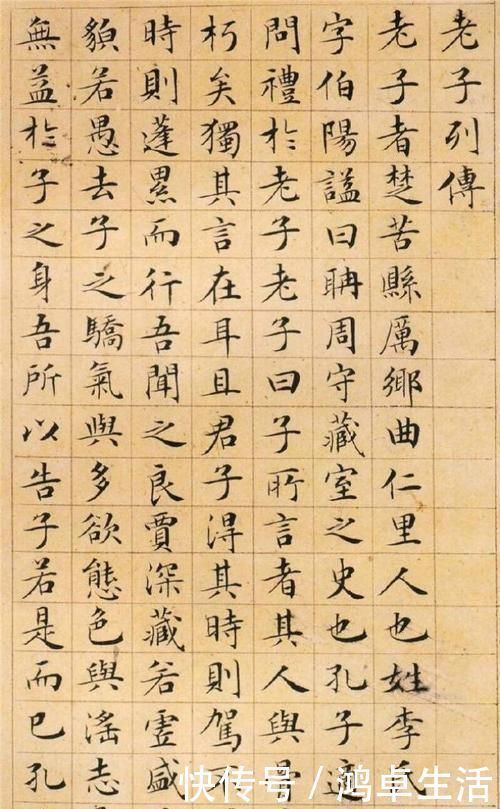 老子列傳
老子者楚苦縣厲鄉曲仁里人也姓李氏
字伯陽謚曰耼周守藏室之史也孔子適
問禮於老子老子曰子所言者其人與骨
朽矣獨其言在耳且君子得其時則駕不
時則蓬累而行吾聞之良賈深藏若虛盛
貌若愚去子之驕氣與多欲態色與淫志
無益於子之身吾所以告子若是而已孔
快传号 / 鸿卓生活